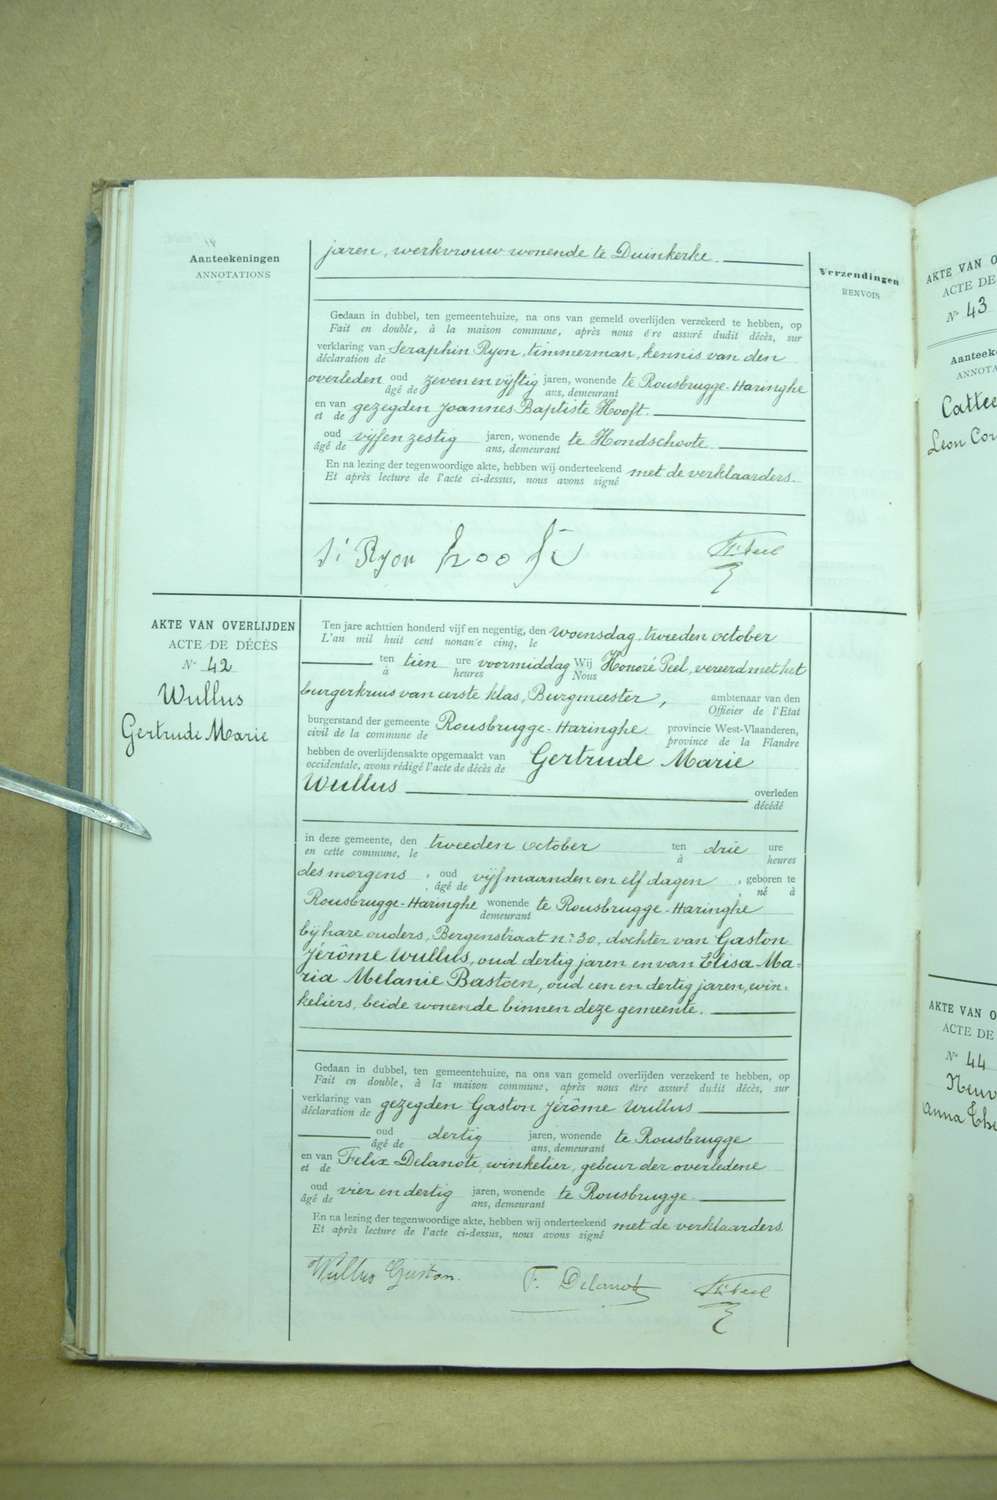 Aanteekeningen
ANNOTATIONS
jaren, werkvrouw wonende te Duinkerke.
Verzendingen
RENVOIS
Gedaan in dubbel, ten gemeentehuize, na ons van gemeld overlijden verzekerd te hebben, op
Fait en double, à la maison commune, après nous être assuré dudit décès, sur
verklaring van Seraphin Ryon, timmerman, kennis van den
déclaration de
overleden oud zeven en vijftig jaren, wonende te Rousbrugge-Haringhe
âgé de ans, demeurant
en van gezegden Joannes Baptiste Hooft.
et de
oud vijf en zestig jaren, wonende te Hondschoote.
âgé de ans, demeurant
En na lezing der tegenwoordige akte, hebben wij onderteekend met de verklaarders.
Et après lecture de l'acte ci-dessus, nous avons signé
Si Ryon hooft
AKTE VAN OVERLIJDEN
ACTE DE DÉCÈS
N° 42
Wullus
Gertrude Marie
Ten jare achttien honderd vijf en negentig, den woensdag, tweeden october
L'an mil huit cent nonan'e cinq, le
ten tien ure voormiddag Wij Honoré Peel, vereerd met het
à heures Nous
burgerkruis van eerste klas, Burgmeester, ambtenaar van den
Officier de l'Etat
burgerstand der gemeente Rousbrugge-Haringhe provincie West-Vlaanderen,
civil de la commune de province de la Flandre
hebben de overlijdensakte opgemaakt van Gertrude Marie
occidentale, avons rédigé l'acte de décès de
Wullus overleden
décédé
in deze gemeente, den tweeden october ten drie ure
en cette commune, le à heures
des morgens, oud vijf maanden en elf dagen, geboren te
âgé de né à
Rousbrugge-Haringhe wonende te Rousbrugge-Haringhe
demeurant
bij hare ouders, Bergenstraat n° 30, dochter van Gaston
Jérôme Wullus, oud dertig jaren en van Elisa-Ma-
ria Melanie Bastoen, oud een en dertig jaren, win-
keliers, beide wonende binnen deze gemeente.
Gedaan in dubbel, ten gemeentehuize, na ons van gemeld overlijden verzekerd te hebben, op
Fait en double, à la maison commune, après nous être assuré dudit décès, sur
verklaring van gezegden Gaston Jérôme Wullus
déclaration de
oud dertig jaren, wonende te Rousbrugge
âgé de ans, demeurant
en van Felix Delanote, winkelier, gebeur der overledene
et de
oud vier en dertig jaren, wonende te Rousbrugge.
âgé de ans, demeurant
En na lezing der tegenwoordige akte, hebben wij onderteekend met de verklaarders.
Et après lecture de l'acte ci-dessus, nous avons signé
Wullus Gaston. F. Delanote
AKTE VAN O
ACTE DE
N° 43
Aanteeke
ANNOTA
Cattee
Leon Cor
AKTE VAN O
ACTE DE
N° 44
Neuv
Anna The